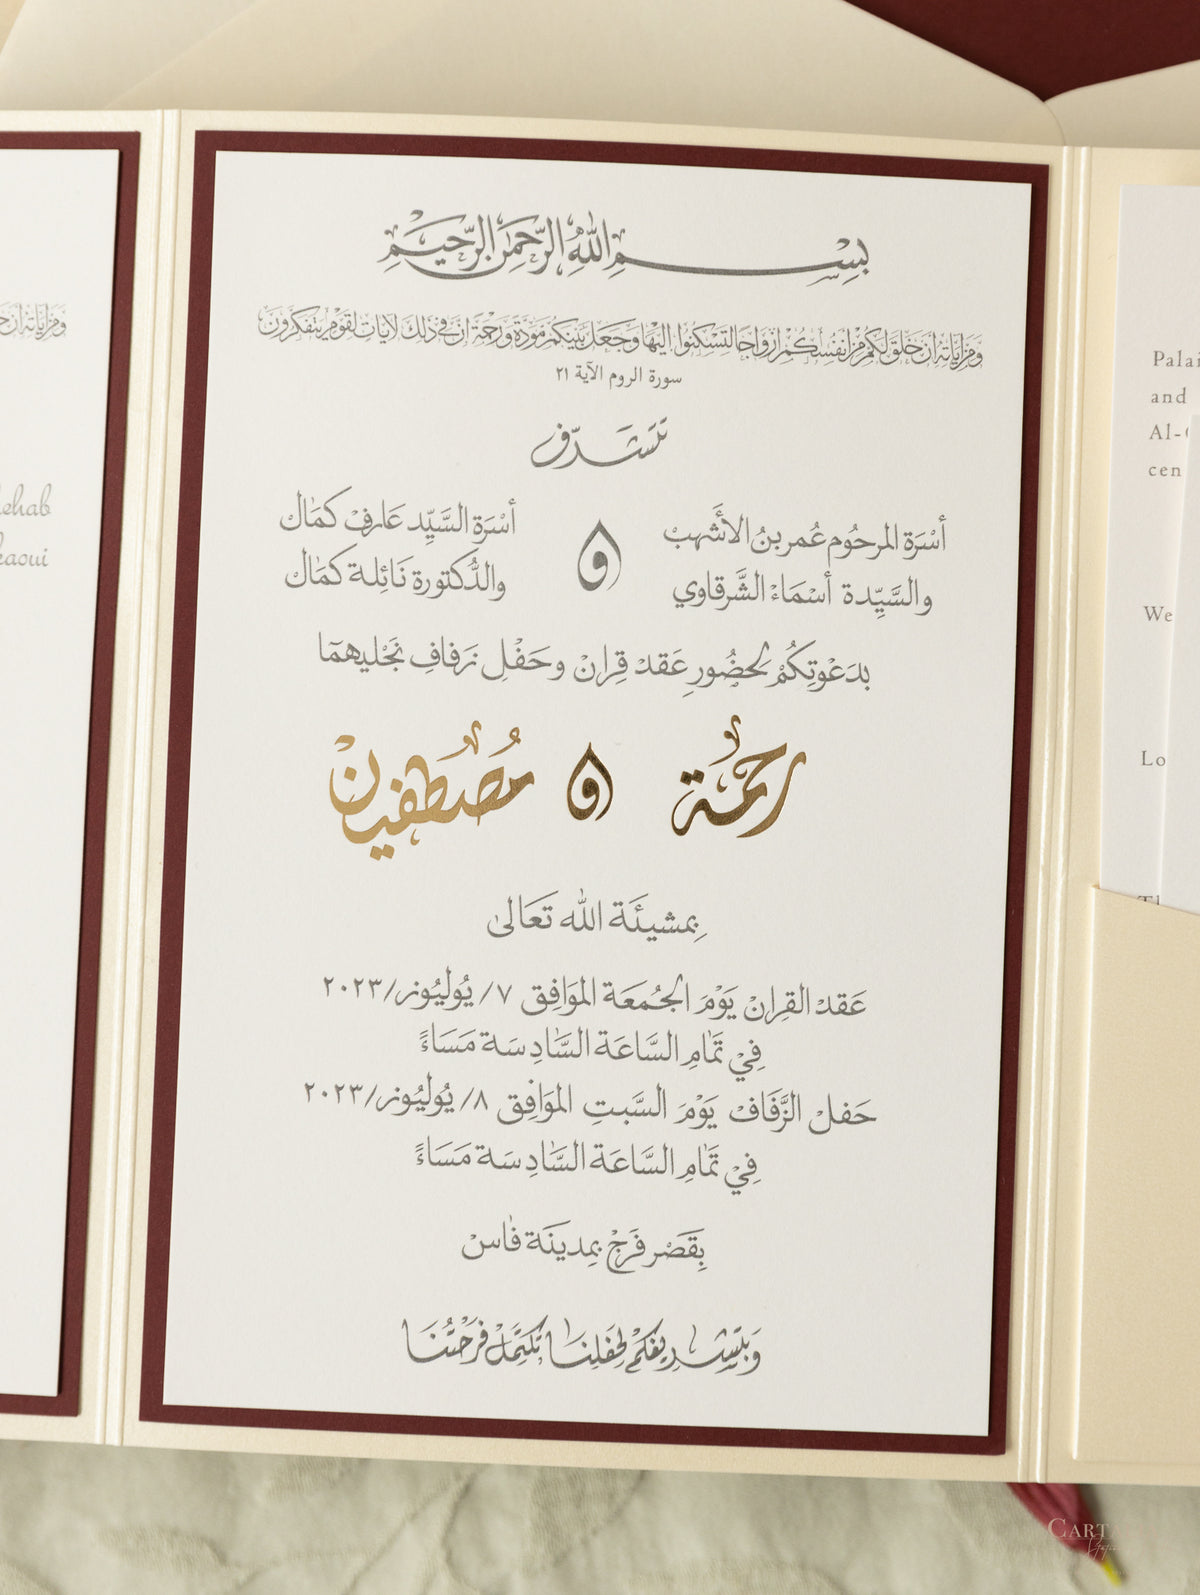 بِسْمِ اللهِ الرَّحْمٰنِ الرَّحِيمِ
وَمِنْ آيَاتِهِ أَنْ خَلَقَ لَكُمْ مِنْ أَنْفُسِكُمْ أَزْوَاجًا لِتَسْكُنُوا إِلَيْهَا وَجَعَلَ بَيْنَكُمْ مَوَدَّةً وَرَحْمَةً إِنَّ فِي ذَلِكَ لَآيَاتٍ لِقَوْمٍ يَتَفَكَّرُونَ
سورة الروم الآية ٢١
تَتَشَرَّف
أسْرَة المرحُوم عُمر بنُ الأشَهب
والسَّيِّدة أسْمَاءْ الشَّرقاوي
و
أسْرَة السَّيِّد عَارفْ كمَال
والدُّكتورة نَائِلة كمَال
بدَعْوتِكُمْ لحضُورِ عَقدْ قِرانْ وحَفْلِ زفافِ نَجْليهمَا
رحمة و مُصْطفيان
بِمشيئَة الله تعَالىٰ
عَقدْ القِرانْ يَوْمَ الجُمعَة الموَافِق ٧/ يُوليُوز/٢٠٢٣
فِيْ تمَامِ السَّاعَة السَّادِسَة مَسَاءً
حَفلْ الزَّفَافْ يَوْمَ السَّبتِ الموَافِق ٨/ يُوليُوز/٢٠٢٣
فِيْ تمَامِ السَّاعَة السَّادِسَة مَسَاءً
بِقَصْر فَرَجْ بِمدينَة فاسْ
وَبتَشْريفكمْ لحَفلِنَا تكتَمَلْ فَرْحَتُنَا
وَمِنْ آيَاتِهِ أَنْ
ehab
kaoui
Palai
and
Al-
cen
We
Lo
CARTA